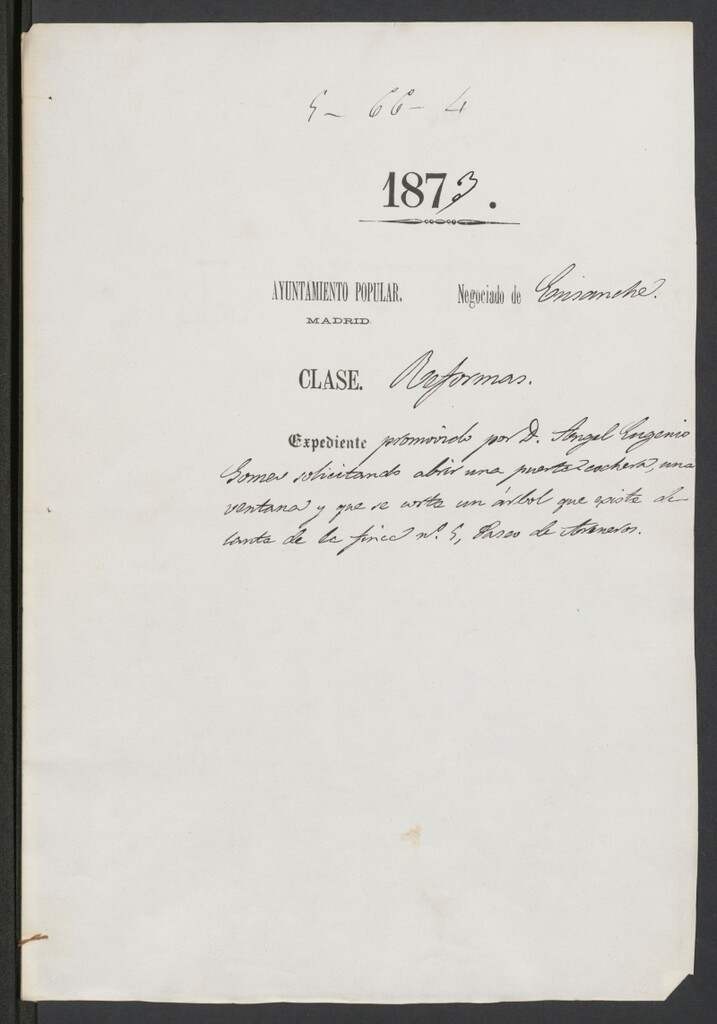 5 - 66 - 4
1873.
AYUNTAMIENTO POPULAR. Negociado de Ensanche.
MADRID.
CLASE. Reformas.
Expediente promovido por D. Angel Eugenio
Gomez solicitando abrir una puerta cochera, una
ventana y que se corte un árbol que existe de-
lante de la finca nº. 5, Paseo de Areneros.